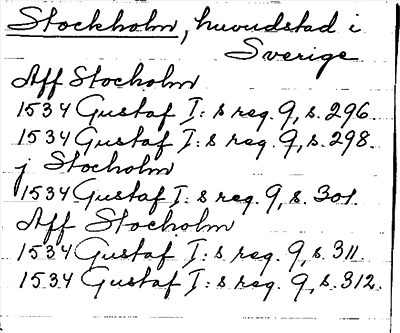 Stockholm, huvudstad i
Sverige
Aff Stocholm
1534 Gustaf I:s reg. 9, s. 296.
1534 Gustaf I:s reg. 9, s. 298.
j Stocholm
1534 Gustaf I:s reg. 9, s. 301.
Aff Stocholm
1534 Gustaf I:s reg. 9, s. 311.
1534 Gustaf I:s reg. 9, s. 312.